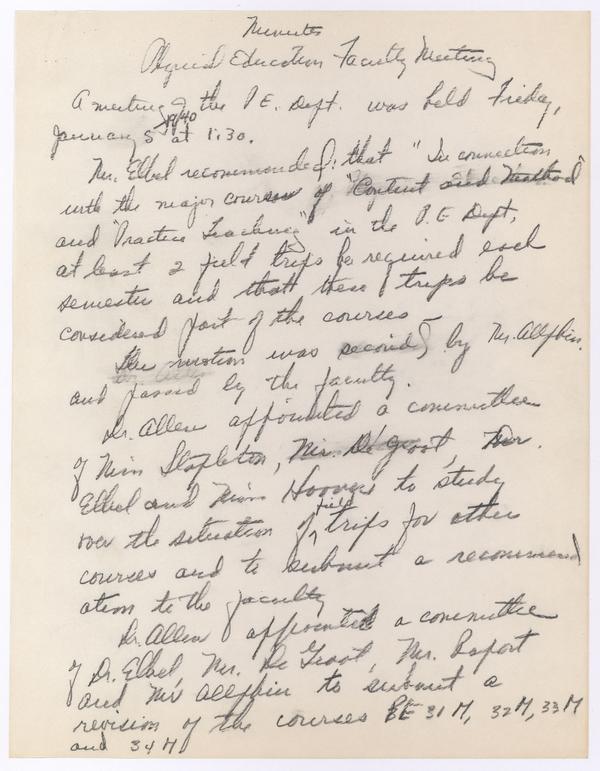 Minutes
Physical Education Faculty Meeting
A meeting of the P.E. Dept. was held Friday,
January 5 1940 at 1:30.
Mr. Elbel recommended: that "In connection
with the major courses of "Content and Method"
and "Practice Teaching" in the P.E Dept,
at least 2 field trips be required each
semester and that these trips be
considered part of the courses –
The motion was second by Mr. Allphin.
and passed by the faculty.
Dr. Allen appointed a committee
of Miss Stapleton, Mr. De Groot, Mr.
Elbel and Miss Hoover to study
over the situation of field trips for other
courses and to submit a recommend
ation to the faculty
Dr. Allen appointed a committee
of Dr. Elbel, Mr. De Groot, Mr. Raport
and Mr Allphin to submit a
revision of the courses PE 31 M, 32 M, 33 M
and 34 M